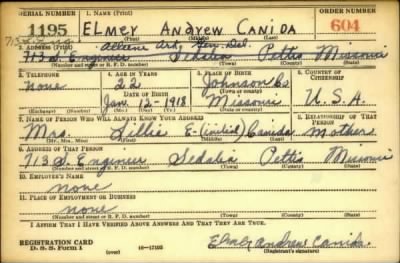 SERIAL NUMBER 1. NAME (Print) ORDER NUMBER
1195 ELMEY ANDREW CANIDA 604
(First) (Middle) (Last)
Gen. Del.
2. ADDRESS (Print)
713 S. Engineer Sedalia Pettis Missouri
(Number and street or R. F. D. number) (Town) (County) (State)
3. TELEPHONE 4. AGE IN YEARS 5. PLACE OF BIRTH 6. COUNTRY OF CITIZENSHIP
none 22 Johnson Co
DATE OF BIRTH (Town or county)
Jan. 12-1918 Missouri U.S.A.
(Exchange) (Number) (Mo.) (Day) (Yr.) (State or country)
7. NAME OF PERSON WHO WILL ALWAYS KNOW YOUR ADDRESS 8. RELATIONSHIP OF THAT PERSON
Mrs. Lillie E-(initial) Canida Mother
(Mr., Mrs., Miss) (First) (Middle) (Last)
9. ADDRESS OF THAT PERSON
713 S. Engineer Sedalia Pettis Missouri
(Number and street or R. F. D. number) (Town) (County) (State)
10. EMPLOYER'S NAME
none
11. PLACE OF EMPLOYMENT OR BUSINESS
none
(Number and street or R. F. D. number) (Town) (County) (State)
I AFFIRM THAT I HAVE VERIFIED ABOVE ANSWERS AND THAT THEY ARE TRUE.
REGISTRATION CARD Elmer Andrew Canida
D. S. S. FORM 1 (over) 16-17105 (Registrant's signature)